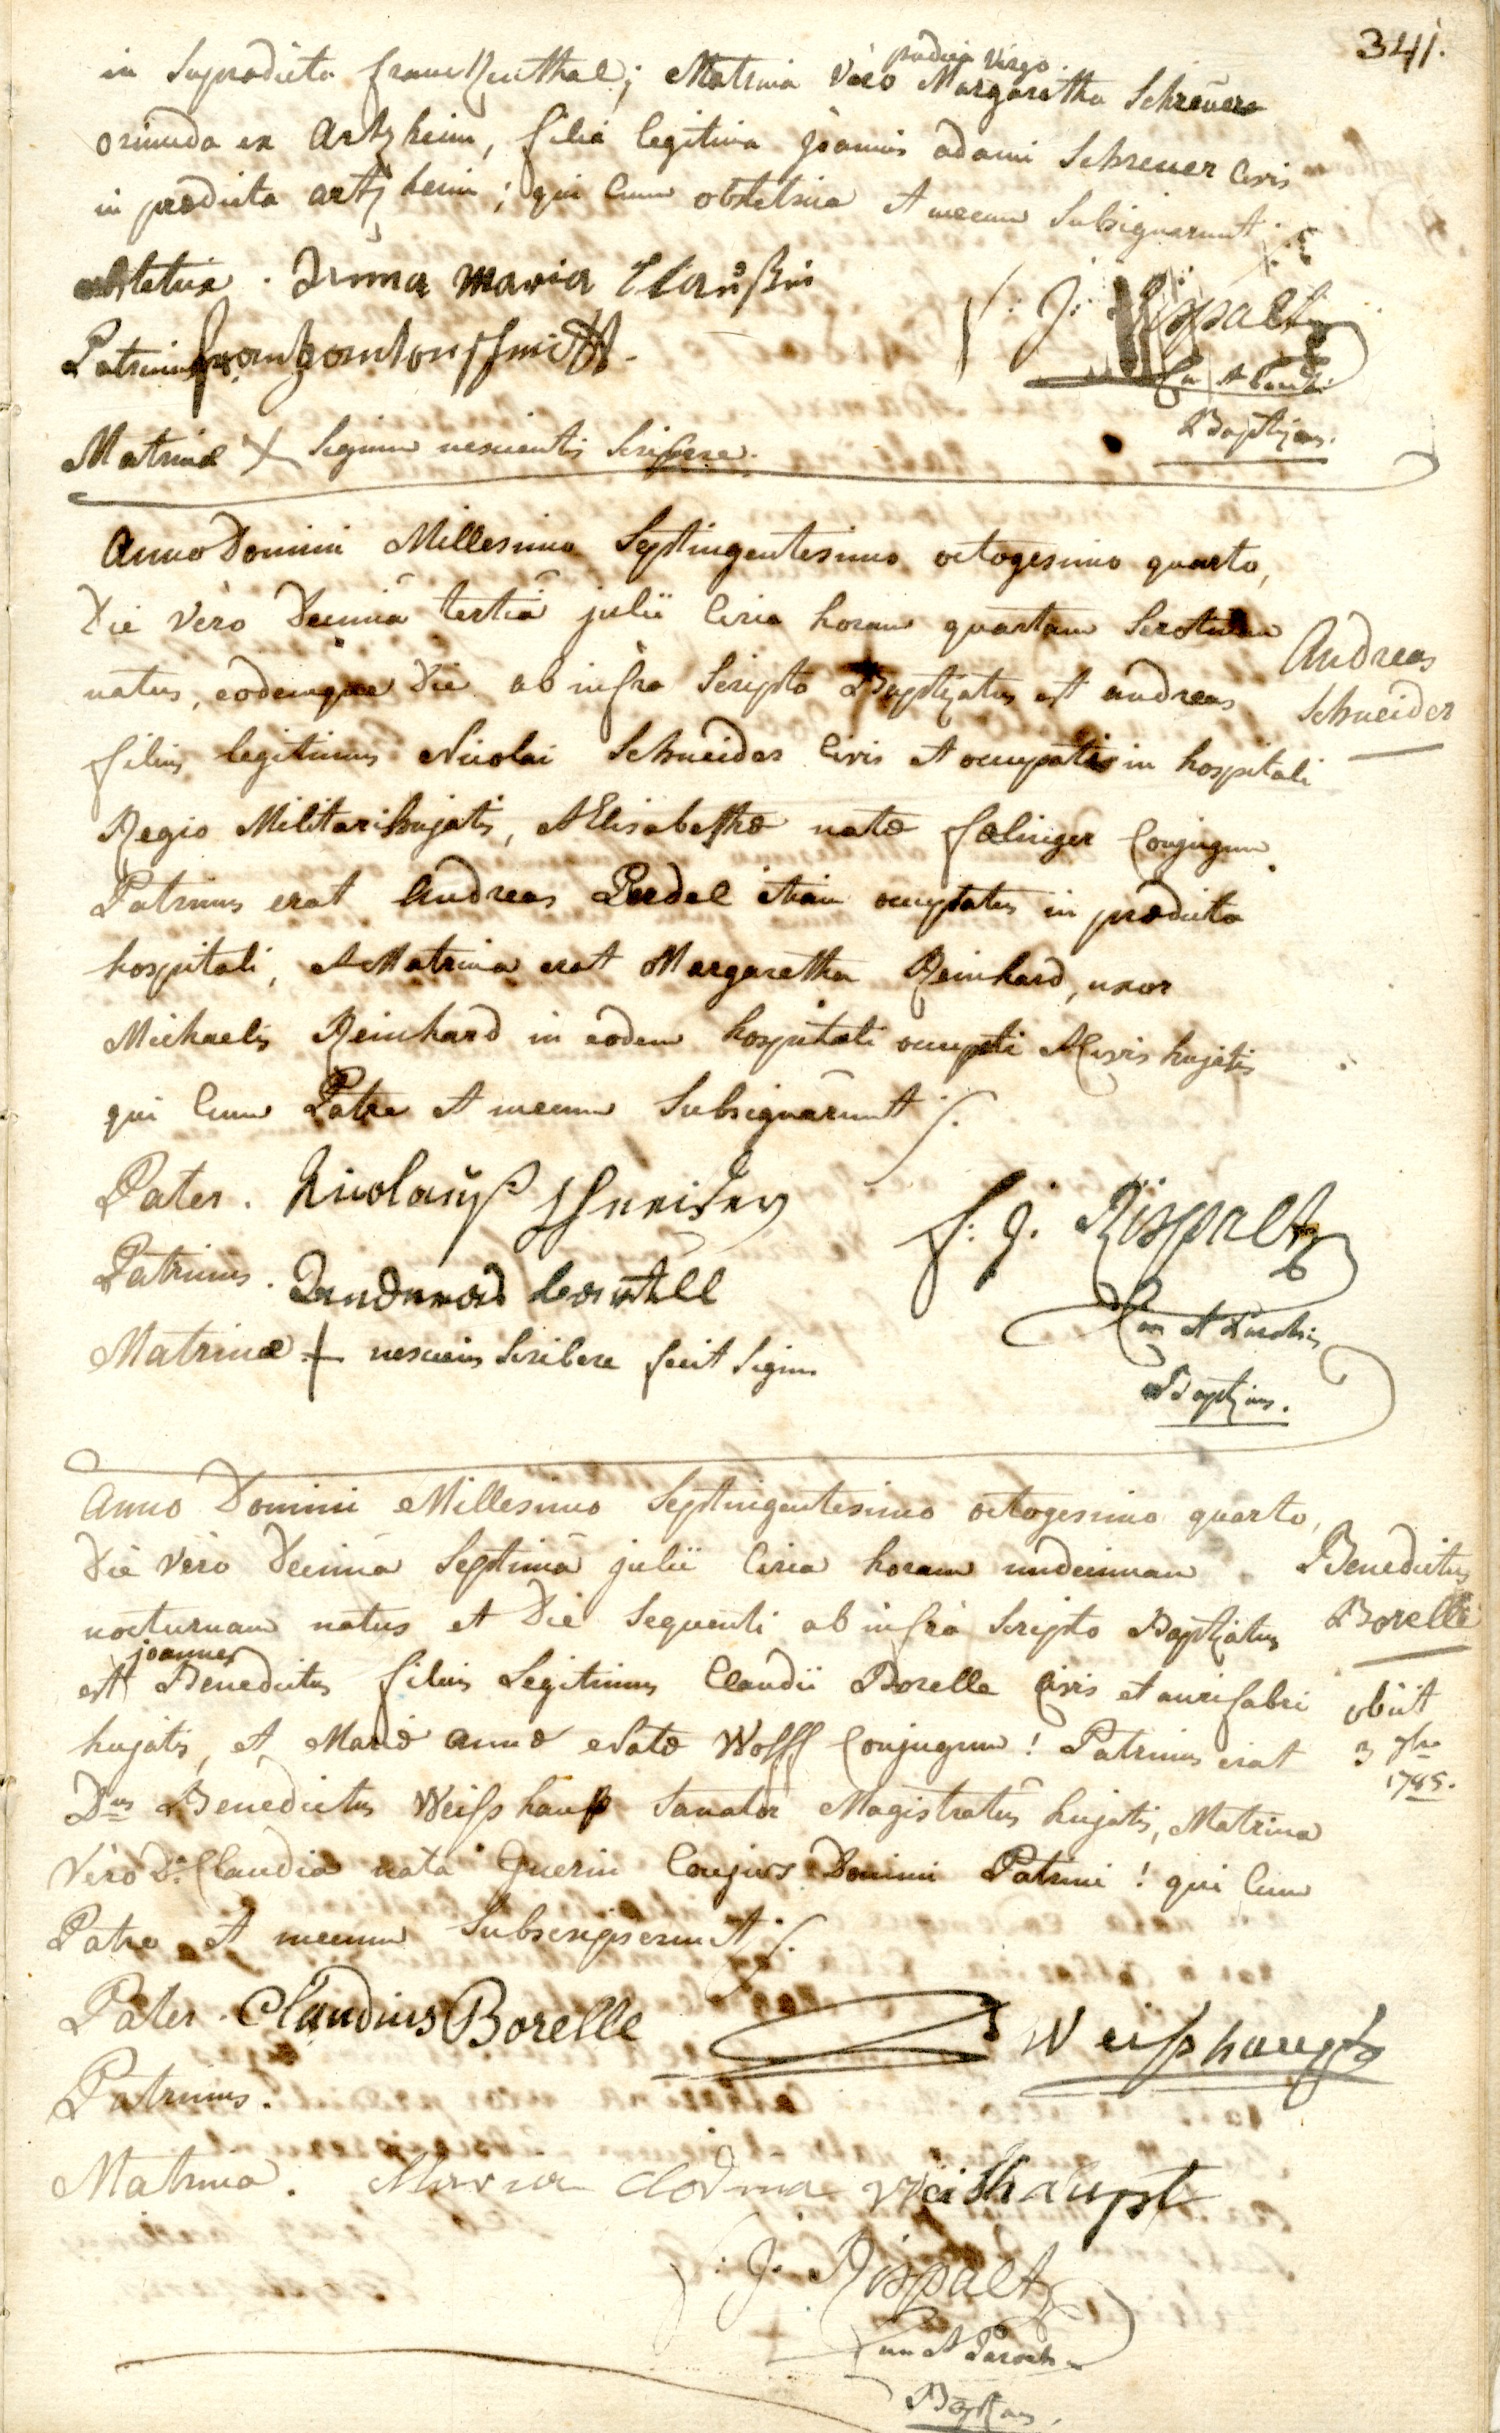 341.
pudica virgo
in Supradicta franckenthal; Matrina vero Margaretha Schreuer
oriunda ex Artzheim, filia legitima Joannis adami Schreuer Civis
in praedicta artzheim; qui Cum obstetrice et mecum Subsignarunt
obstetrix . Anna Maria
F: J: Rispalt
Patrinus frantz anton schmitt
Can et Paroch:
Baptizans.
Matrinae + Signum nescientis Scribere.
Anno Domini Millesimo Septingentesimo octogesimo quarto,
Die vero Decimâ tertiâ julii Circa horam quartam Serotinam
Andreas
Schneider
natus, eodemque Die ab infra Scripto Baptizatus est andreas
filius legitimus Nicolai Schneider Civis et occupati in hospitali
Regio Militari hujatis, et Elisabethae natae Conjugum
Patrinus erat Andreas Perdel etiam occupatus in praedicto
hospitali, et Matrina erat Margaretha Reinhard, uxor
Michaelis Reinhard in eodem hospitali occupati et Civis hujatis
qui Cum Patre et mecum Subsignârunt ·/.
Pater . Nicolauß Schneider
F: J: Rispalt
Patrinus .
Can et Parochus
Matrinae + nesciens Scribere fecit Signum
Baptizans.
Anno Domini Millesimo Septingentesimo octogesimo quarto,
Die vero Decimâ Septimâ julii Circa horam undecimam
Benedictus
Borelle
nocturnam natus et Die Sequenti ab infrà Scripto Baptizatus
joannes
est Benedictus filius Legitimus Claudii Borelle Civis et aurifabri
obiit
3 9bre
1785.
hujatis, et Mariae annae Natae Wolff Conjugum! Patrinus erat
Dnus Benedictus Weisshaupt Senator Magistratûs hujatis, Matrina
Vero Da Claudia nata Guerin Conjux Domini Patrini! qui Cum
Patre et mecum Subscripserunt ·/.
Pater . Claudius Borelle
Weisshaupt
Patrinus.
Matrina . Maria Clodina Weishaupt
F: J: Rispalt
Can et Paroch
Baptizans.